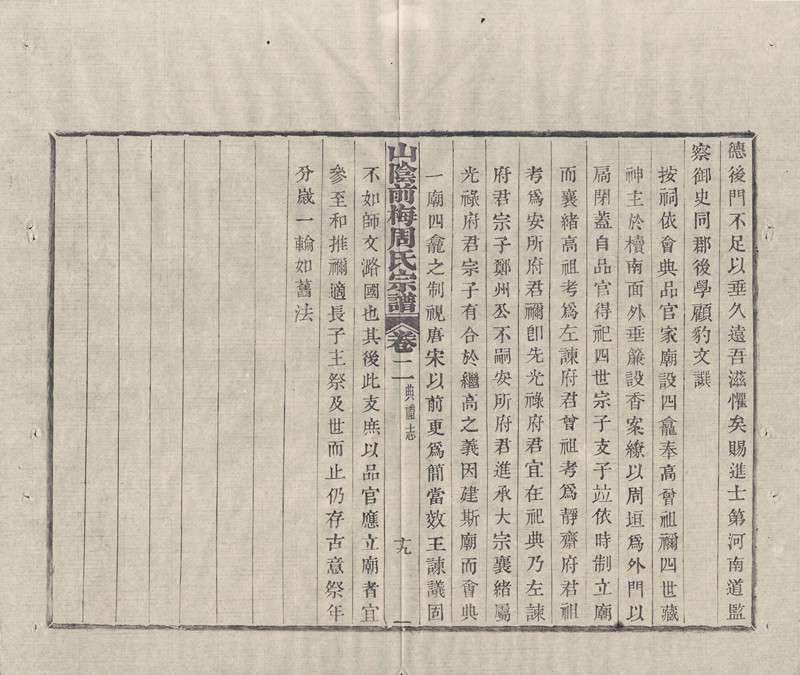 德後門不足以垂久遠吾滋懼矣賜進士第河南道監
察御史同郡後學顧豹文譔
按祠依會典品官家廟設四龕奉高曾祖禰四世藏
神主於櫝南面外垂簾設香案繚以周垣爲外門以
扄閉蓋自品官得祀四世宗子支子竝依時制立廟
而襄緒高祖考爲左諫府君曾祖考爲靜齋府君祖
考爲安所府君禰卽先光祿府君宜在祀典乃左諫
府君宗子鄭州公不嗣安所府君進承大宗襄緒屬
光祿府君宗子有合於繼高之義因建斯廟而會典
一廟四龕之制視唐宋以前更爲簡當效王諫議固
山陰前梅周氏宗譜 卷二 典禮志 十九
不如師文潞國也其後此支庶以品官應立廟者宜
參至和推禰適長子主祭及世而止仍存古意祭年
分歲一輪如舊法